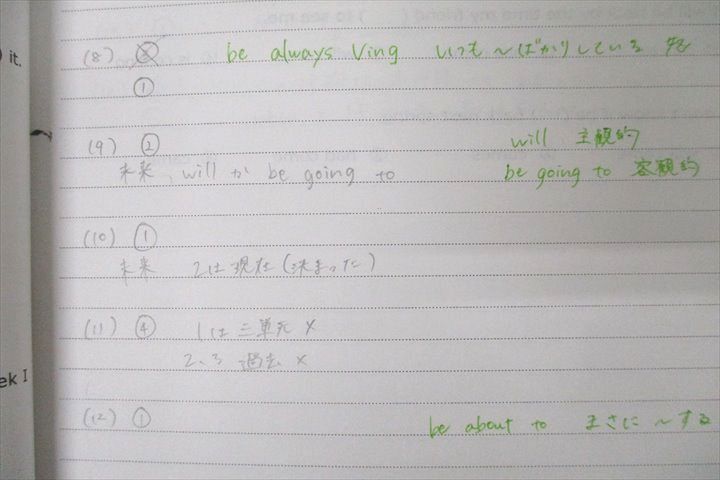 it.
(8) be always Ving いつも〜ばかりしている
①
(9) ② will 主観的
未来、will か be going to be going to 客観的
(10) ①
未来 2は現在(決まった)
(11) ④ 1は三単元 ×
2、3 過去 ×
ek I
(12) ① be about to まさに〜する